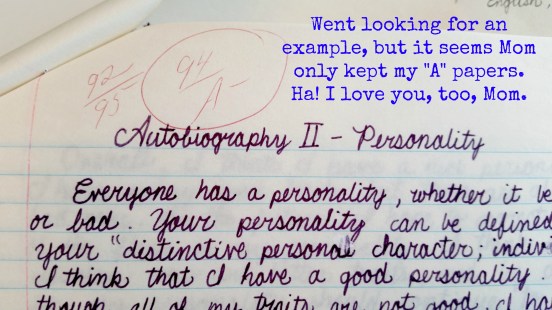 English,
Went looking for an
example, but it seems Mom
only kept my "A" papers.
Ha! I love you, too, Mom.
92/95
94/A-
Autobiography II - Personality
Everyone has a personality, whether it be
or bad. Your personality can be defined
your "distinctive personal character; indivi
I think that I have a good personality.
though all of my traits are not good, I ha